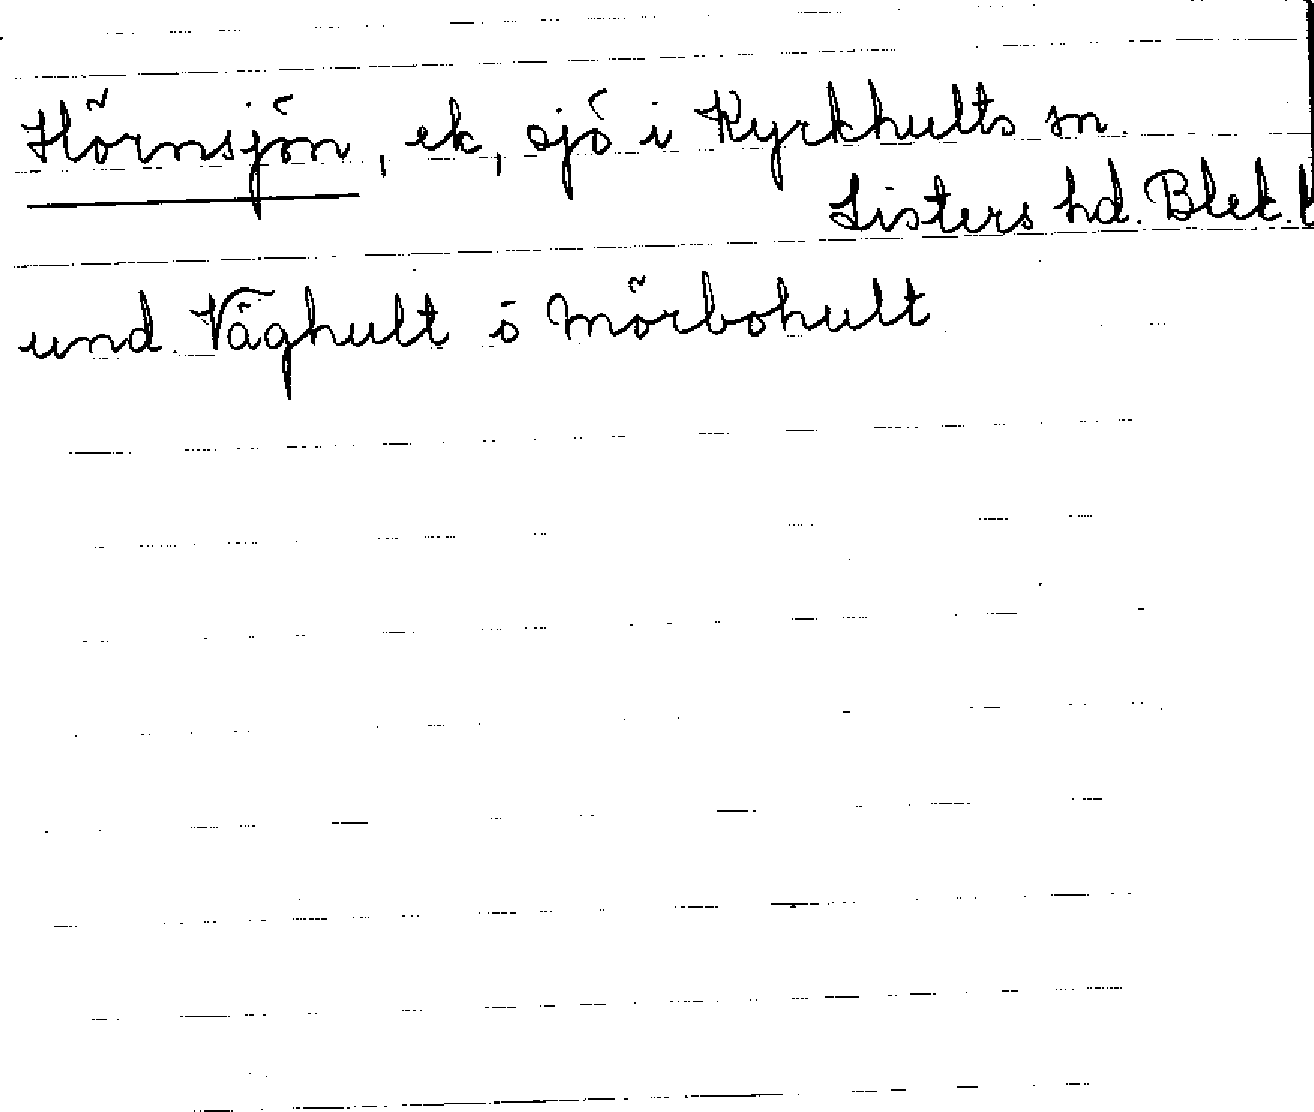 Hörnsjön, ek, sjö i Kyrkhults sn.
Listers hd. Blek. l
und. Våghult ö Mörbohult